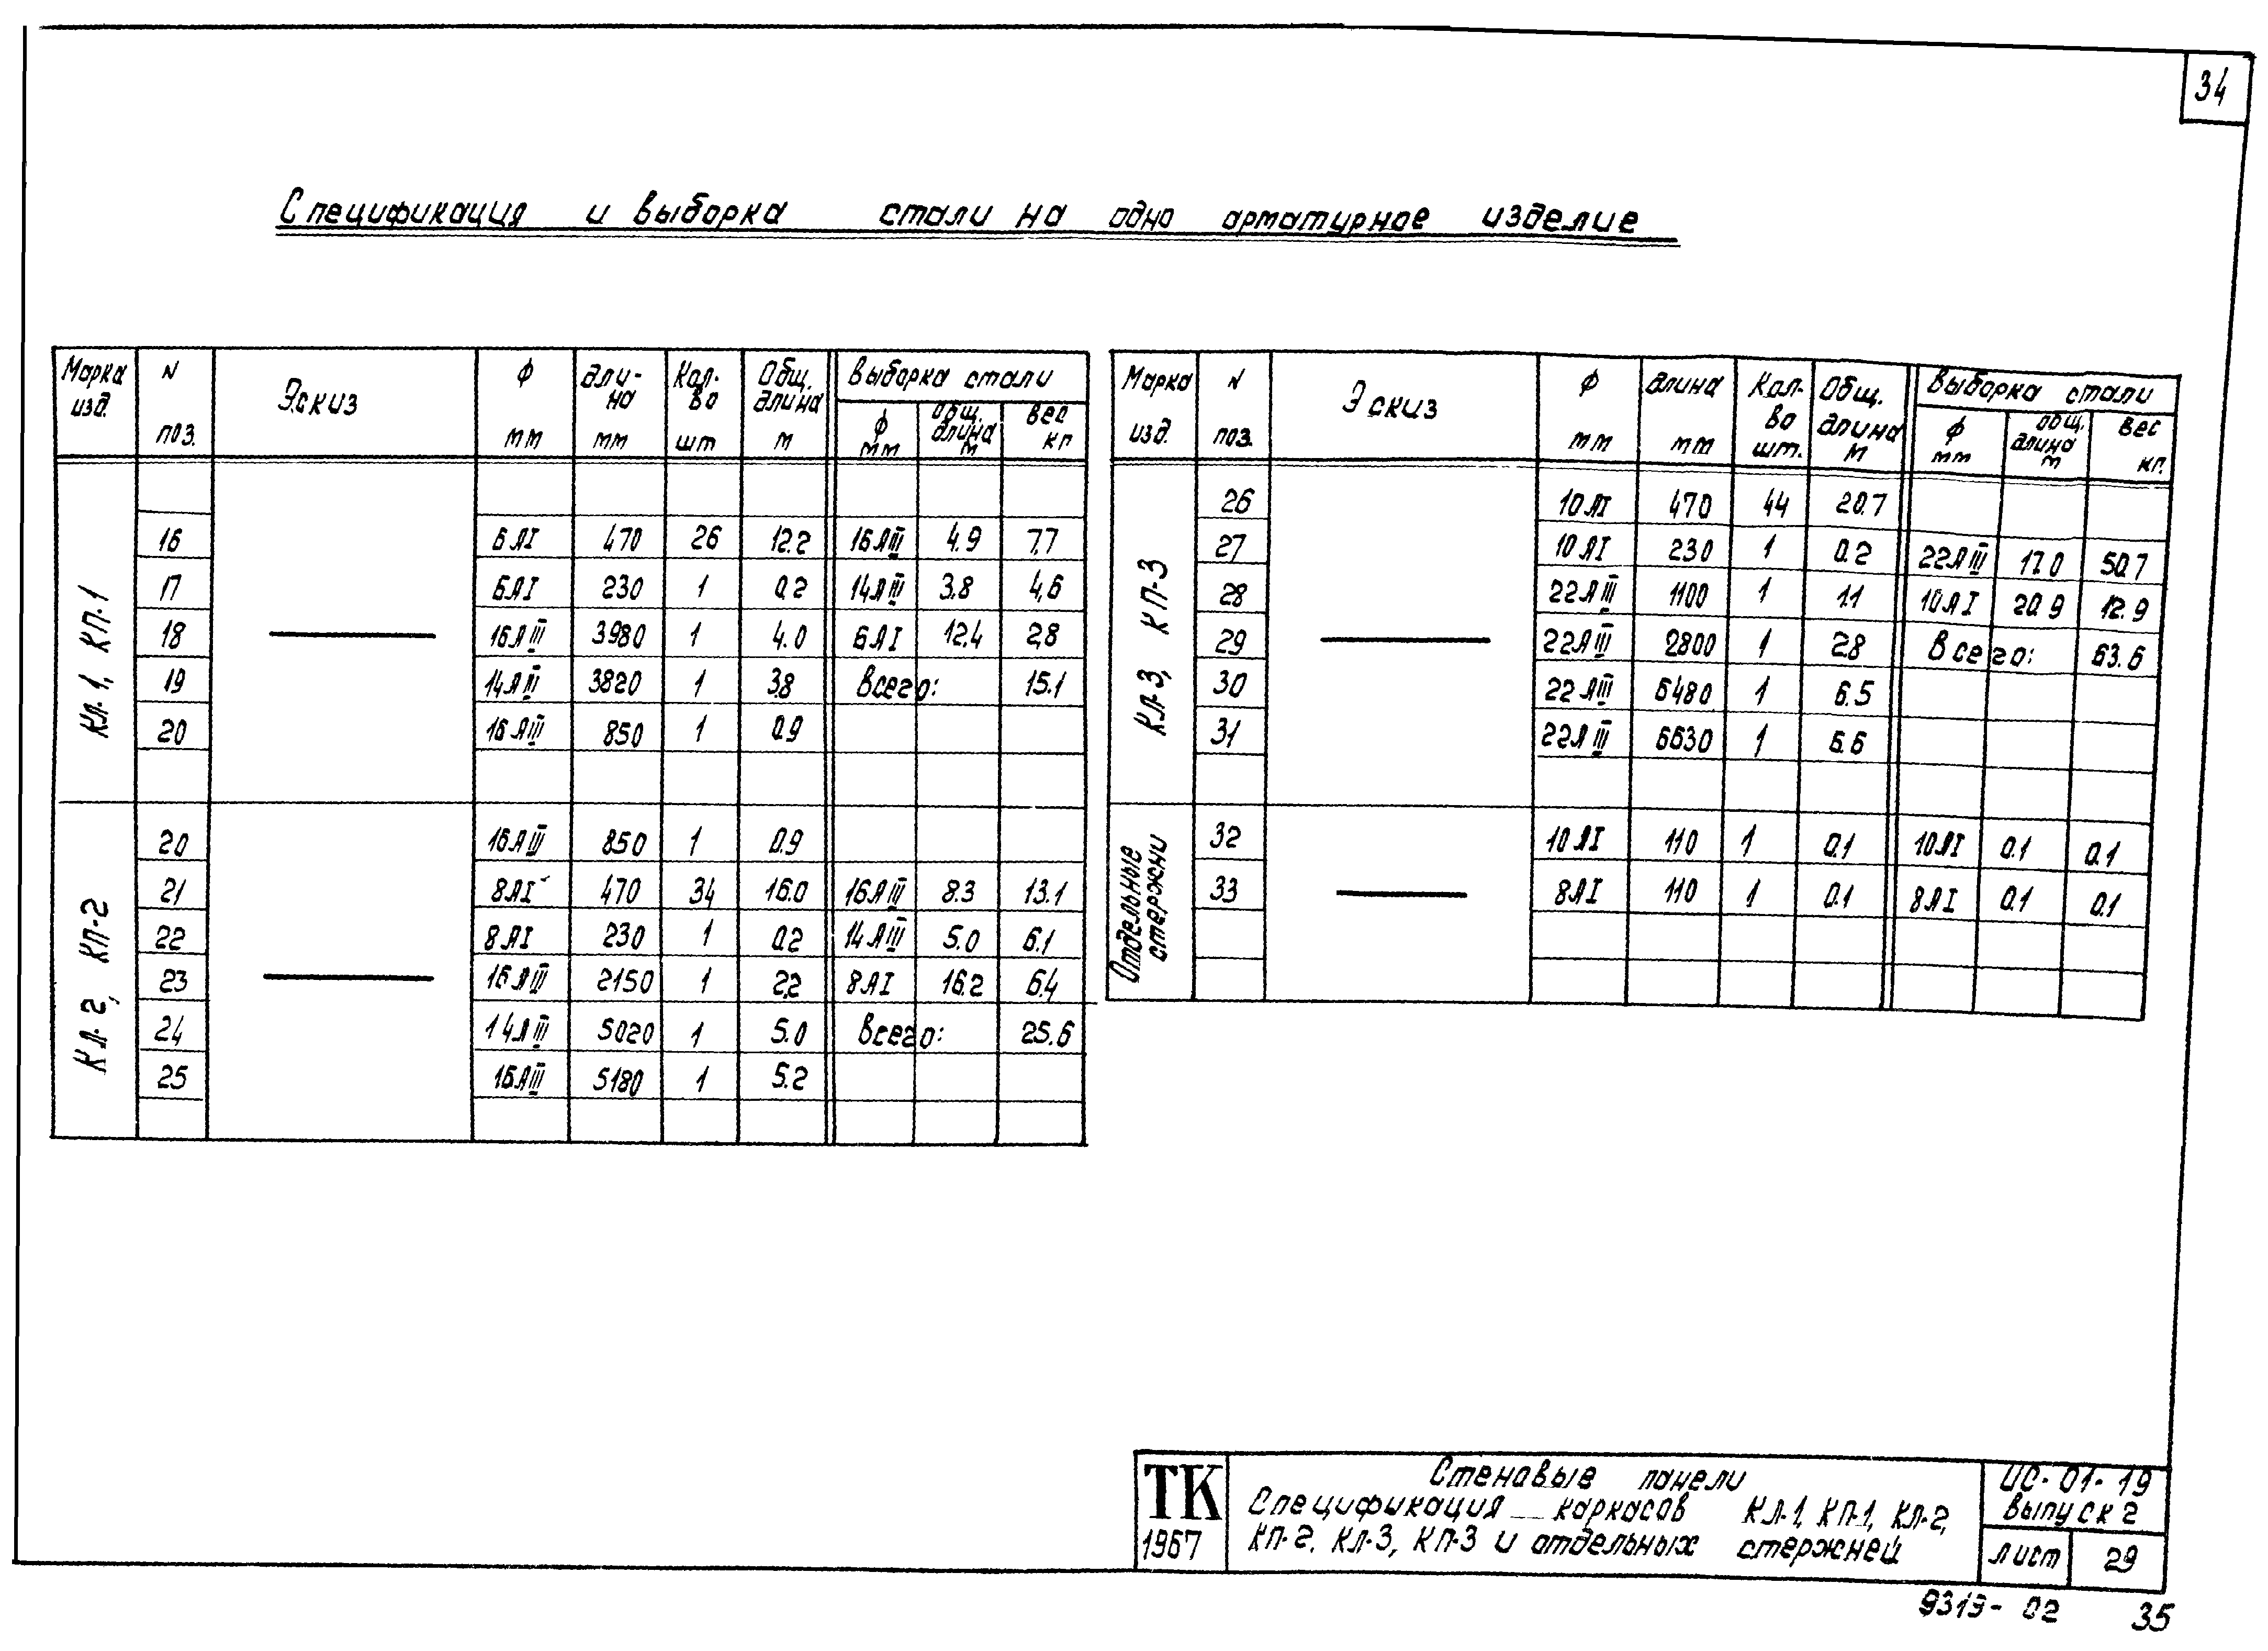 34
Спецификация и выборка стали на одно арматурное изделие
Марка изд. N поз. Эскиз ф мм Дли-на мм Кол-во шт Общ. длина м Выборка стали ф мм общ. длина м вес кг
КЛ-1, КП-1
16 6АI 470 26 12.2 16АIII 4.9 7,7
17 6АI 230 1 0.2 14АIII 3.8 4,6
18 16АIII 3980 1 4.0 6АI 12.4 2,8
19 14АIII 3820 1 3.8 Всего: 15.1
20 16АIII 850 1 0.9
КЛ-2, КП-2
20 16АIII 850 1 0.9
21 8АI 470 34 16.0 16АIII 8.3 13.1
22 8АI 230 1 0.2 14АIII 5.0 6.1
23 16АIII 2150 1 2,2 8АI 16.2 6.4
24 14АIII 5020 1 5.0 Всего: 25.6
25 16АIII 5180 1 5.2
Марка изд. N поз. Эскиз ф мм Длина мм Кол-во шт. Общ. длина м Выборка стали ф мм общ. длина м вес кг.
КЛ-3, КП-3
26 10АI 470 44 20.7
27 10АI 230 1 0.2 22АIII 17.0 50.7
28 22АIII 1100 1 1.1 10АI 20.9 12.9
29 22АIII 2800 1 2.8 Всего: 63.6
30 22АIII 6480 1 6.5
31 22АIII 6630 1 6.6
Отдельные стержни
32 10АI 110 1 0.1 10АI 0.1 0.1
33 8АI 110 1 0.1 8АI 0.1 0.1
ТК
1967
Стеновые панели
Спецификация каркасов КЛ-1, КП-1, КЛ-2,
КП-2, КЛ-3, КП-3 и отдельных стержней
ИС-01-19
Выпуск 2
лист 29
9319-02 35